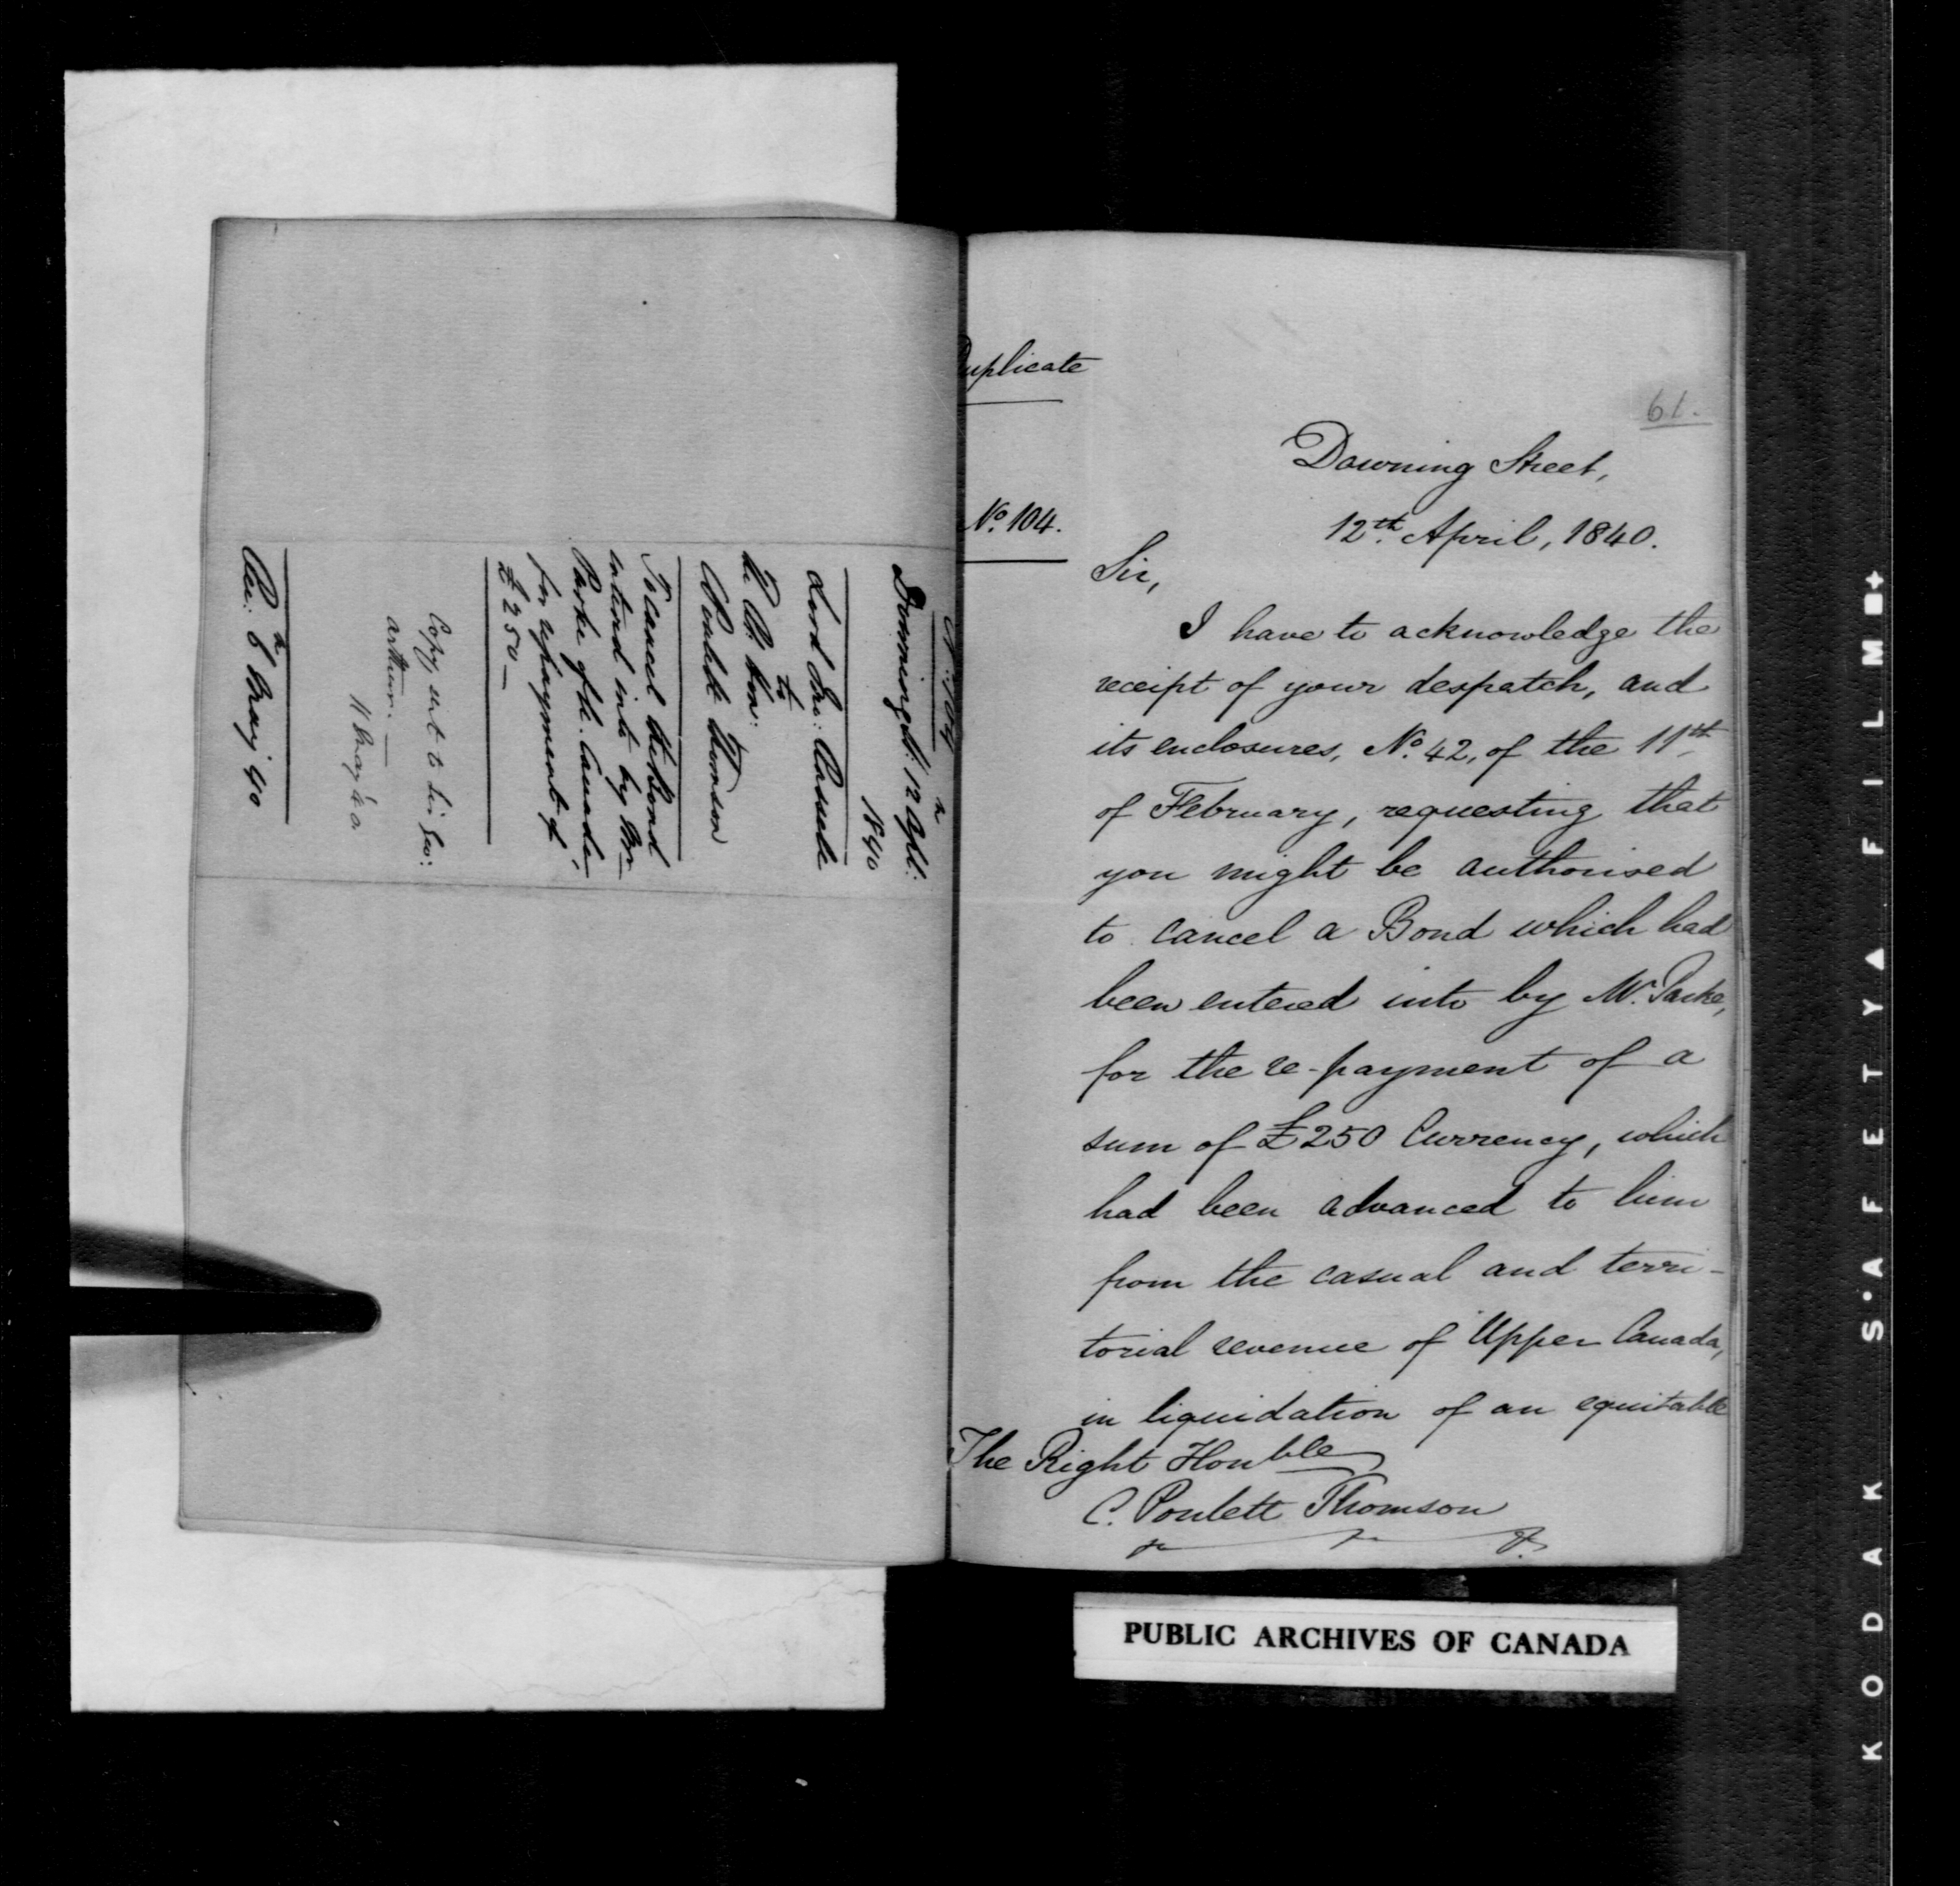 No. 104
Downing St: 12th Apl:
1840
Lord Jno: Russell
to
C Poulett Thomson
To cancel the Bond
entered into by Mr
Parke of U. Canada
for repayment of
£250—
Copy sent to Sir Geo:
Arthur.—
11 May 40
Rec: 8th May 40
Duplicate
61.
No. 104.
Downing Street,
12th. April, 1840.
Sir,
I have to acknowledge the
receipt of your despatch, and
its enclosures, No. 42, of the 11th
of February, requesting that
you might be authorised
to cancel a Bond which had
been entered into by Mr. Parke,
for the re-payment of a
sum of £250 Currency, which
had been advanced to him
from the casual and terri-
torial revenue of Upper Canada,
in liquidation of an equitable
The Right Honble
C. Poulett Thomson
PUBLIC ARCHIVES OF CANADA
KODAK SAFETY FILM